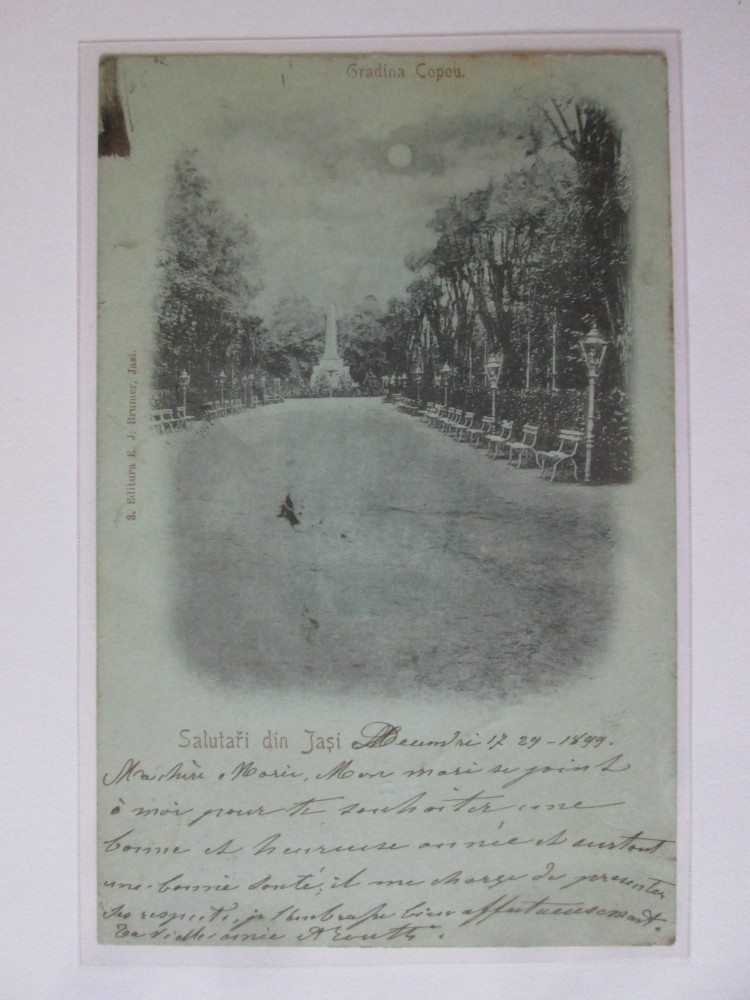 Gradina Copou.
3. Editura E. J. Brunner, Jasi.
Salutaři din Jaşi Decembri 17 29 - 1899.
Ma chère Marie, Mon mari se joint
à moi pour te souhaiter une
bonne et heureuse année et surtout
une bonne santé; il me charge de presenter
ses respects, je t'embrasse bien affectueusement.
Ta vieille amie